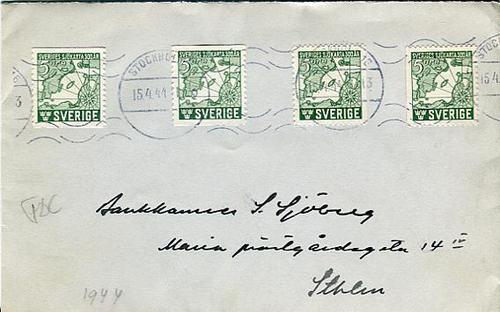 SVERIGES SJÖKARTA 300 ÅR SVERIGES SJÖKARTA 300 ÅR SVERIGES SJÖKARTA 300 ÅR SVERIGES SJÖKARTA 300 ÅR
5 ÖRE 5 ÖRE 5 ÖRE 5 ÖRE
STOCKHOLM
3 15.4.44
SVERIGE SVERIGE SVERIGE SVERIGE
S. Sjöberg
Maria prästgårdsgata 14 IV
Sthlm
1944